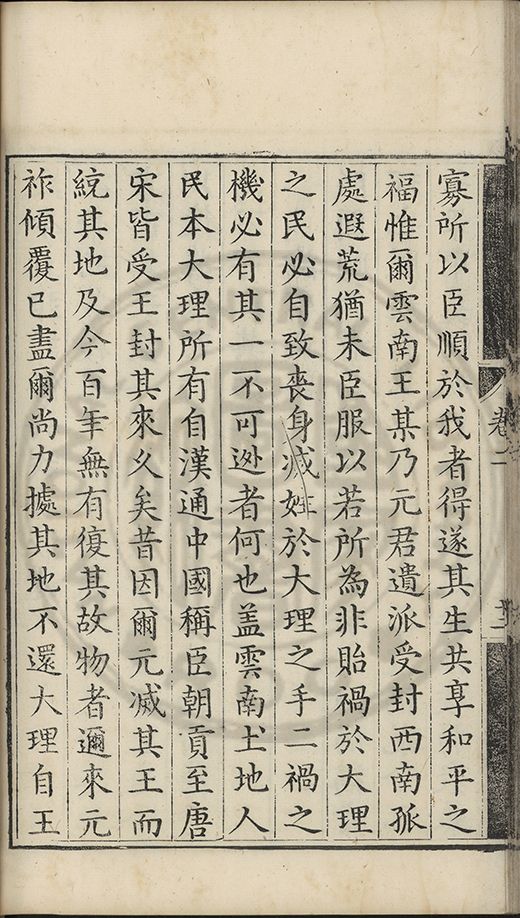 寡所以臣順於我者得遂其生共享和平之
福惟爾雲南王某乃元君遺派受封西南孤
處遐荒猶未臣服以若所為非貽禍於大理
之民必自致喪身滅姓於大理之手二禍之
機必有其一不可逊者何也盖雲南土地人
民本大理所有自漢通中國稱臣朝貢至唐
宋皆受王封其來久矣昔因爾元滅其王而
統其地及今百年無有復其故物者邇來元
祚傾覆已盡爾尚力據其地不還大理自王
卷二